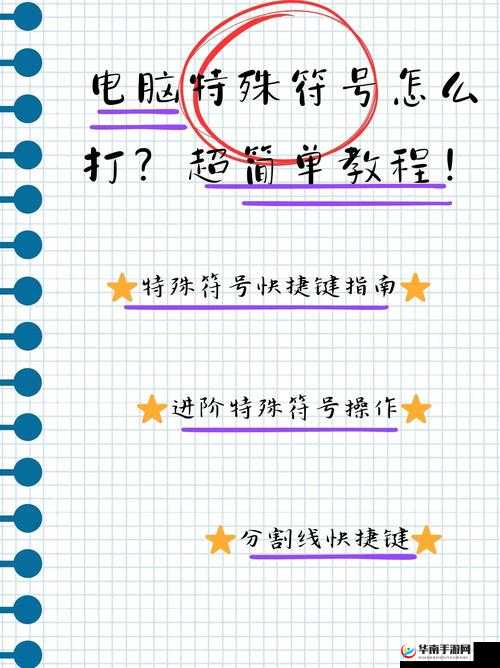 电脑特殊符号怎么
打？超简单教程！
特殊符号快捷键指南
进阶特殊符号操作
分割线快捷键
华南手游网